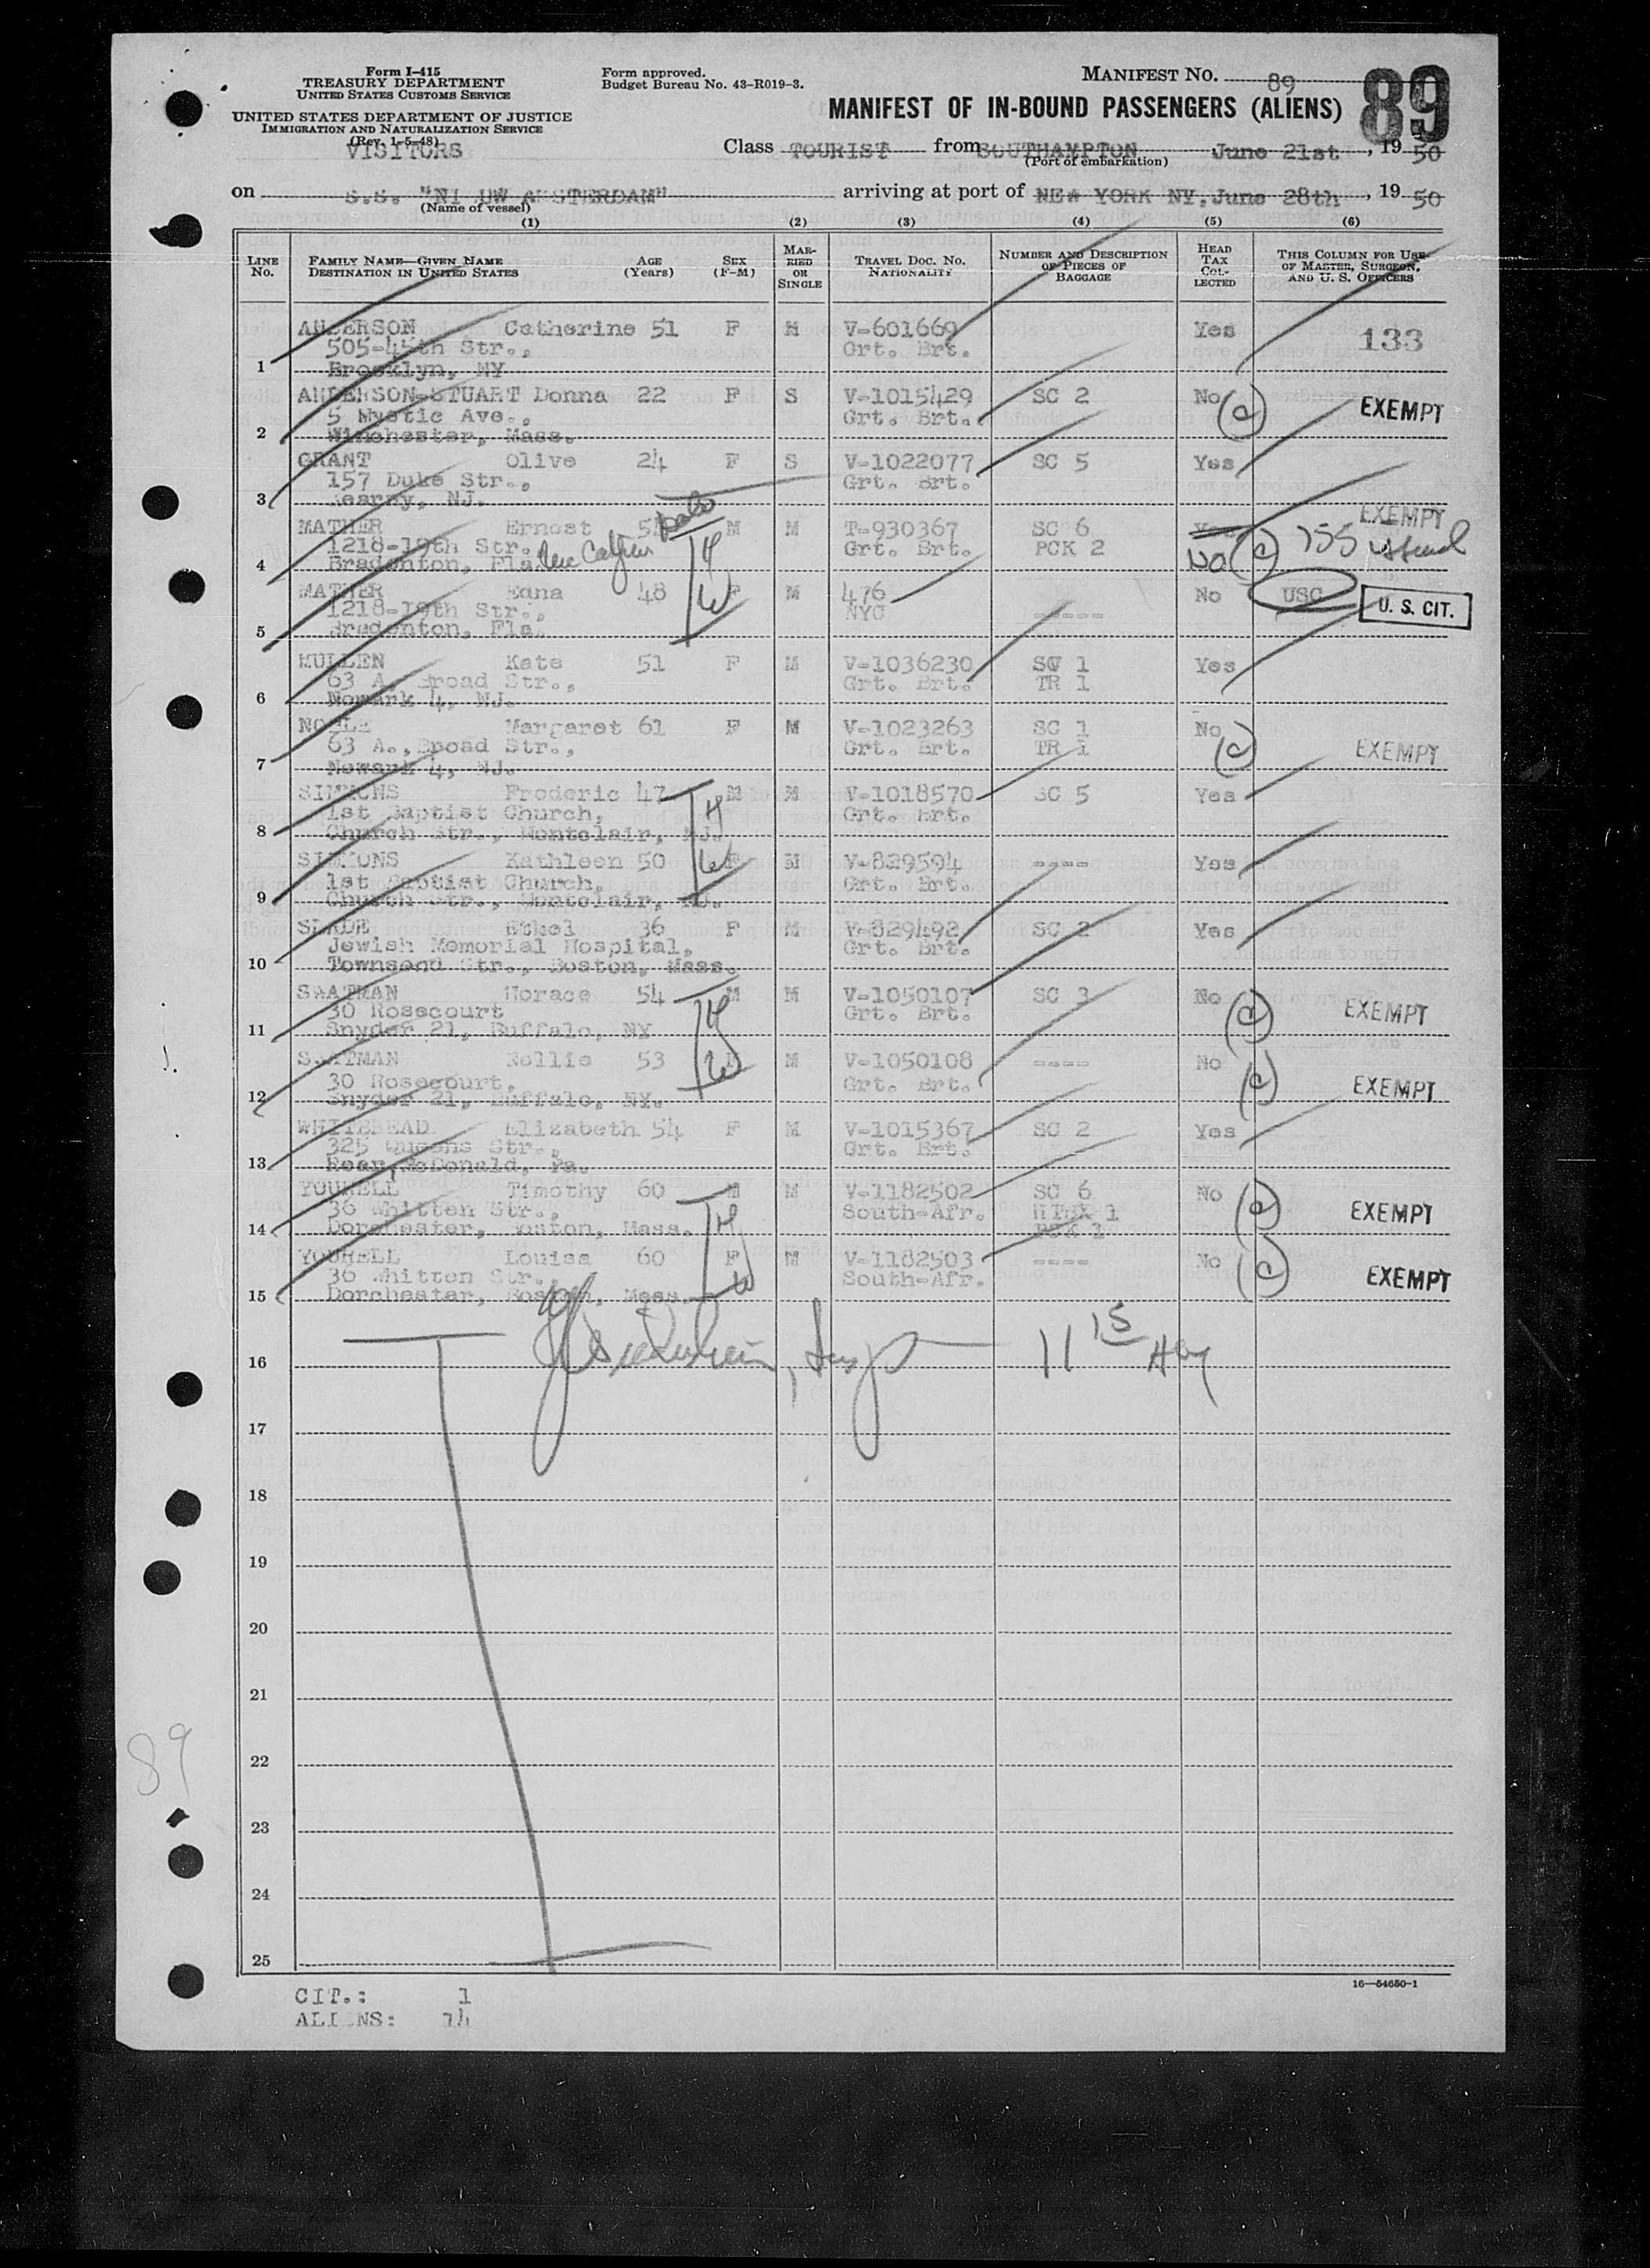 Form I-415
TREASURY DEPARTMENT
UNITED STATES CUSTOMS SERVICE
UNITED STATES DEPARTMENT OF JUSTICE
IMMIGRATION AND NATURALIZATION SERVICE
(Rev. 1-5-48)
VISITORS
Form approved.
Budget Bureau No. 43-R019-3.
MANIFEST NO. 89
89
MANIFEST OF IN-BOUND PASSENGERS (ALIENS)
Class TOURIST from SOUTHAMPTON June 21st, 19 50
(Port of embarkation)
on S.S. "NI UW AMSTERDAM" arriving at port of NEW YORK NY, June 28th, 19 50
(Name of vessel)
(1) (2) (3) (4) (5) (6)
LINE No. FAMILY NAME—GIVEN NAME DESTINATION IN UNITED STATES AGE (Years) SEX (F-M) MARRIED OR SINGLE TRAVEL DOC. NO. NATIONALITY NUMBER AND DESCRIPTION OF PIECES OF BAGGAGE HEAD TAX COLLECTED THIS COLUMN FOR USE OF MASTER, SURGEON, AND U. S. OFFICERS
ANDERSON Catherine 51 F M V-601669 Yes 133
505-45th Str., Grt. Brt.
1 Brooklyn, NY
ANDERSON-STUART Donna 22 F S V-1015429 SC 2 No (c) EXEMPT
5 Mystic Ave., Grt. Brt.
2 Winchester, Mass.
GRANT Olive 24 F S V-1022077 SC 5 Yes
157 Duke Str., Grt. Brt.
3 Kearny, NJ.
MATHER Ernest M M T-930367 SC 6 Yes EXEMPT
1218-19th Str. Grt. Brt. PCK 2 No (c)
4 Bradenton, Fla.
MATHER Edna 48 F M 476 No USC U. S. CIT.
1218-19th Str., NYC -----
5 Bradenton, Fla.
MULLEN Kate 51 F M V-1036230 SC 1 Yes
63 A. Broad Str., Grt. Brt. TR 1
6 Newark 4, NJ.
NOBLE Margaret 61 F M V-1023263 SC 1 No (c) EXEMPT
63 A., Broad Str., Grt. Brt. TR 1
7 Newark 4, NJ.
SIMMONS Frederic 47 M M V-1018570 SC 5 Yes
1st Baptist Church, Grt. Brt.
8 Church Str., Montclair, NJ.
SIMMONS Kathleen 50 F M V-829594 ---- Yes
1st Baptist Church, Grt. Brt.
9 Church Str., Montclair, NJ.
SLADE Ethel 36 F M V-829492 SC 2 Yes
Jewish Memorial Hospital, Grt. Brt.
10 Townsend Str., Boston, Mass.
SWATMAN Horace 54 M M V-1050107 SC 3 No (c) EXEMPT
30 Rosecourt Grt. Brt.
11 Snyder 21, Buffalo, NY
SWATMAN Nellie 53 M V-1050108 ---- No (c) EXEMPT
30 Rosecourt, Grt. Brt.
12 Snyder 21, Buffalo, NY.
WHITEHEAD Elizabeth 54 F M V-1015367 SC 2 Yes
325 Queens Str., Grt. Brt.
13 Rear, McDonald, Pa.
YOURELL Timothy 60 M M V-1182502 SC 6 No (c) EXEMPT
36 Whitten Str., South-Afr.
14 Dorchester, Boston, Mass.
YOURELL Louisa 60 F M V-1182503 ---- No (c) EXEMPT
36 Whitten Str., South-Afr.
15 Dorchester, Boston, Mass.
16 11 15
17
18
19
20
21
22
23
24
25
89
16—54650-1
CIT.: 1
ALI NS: 14